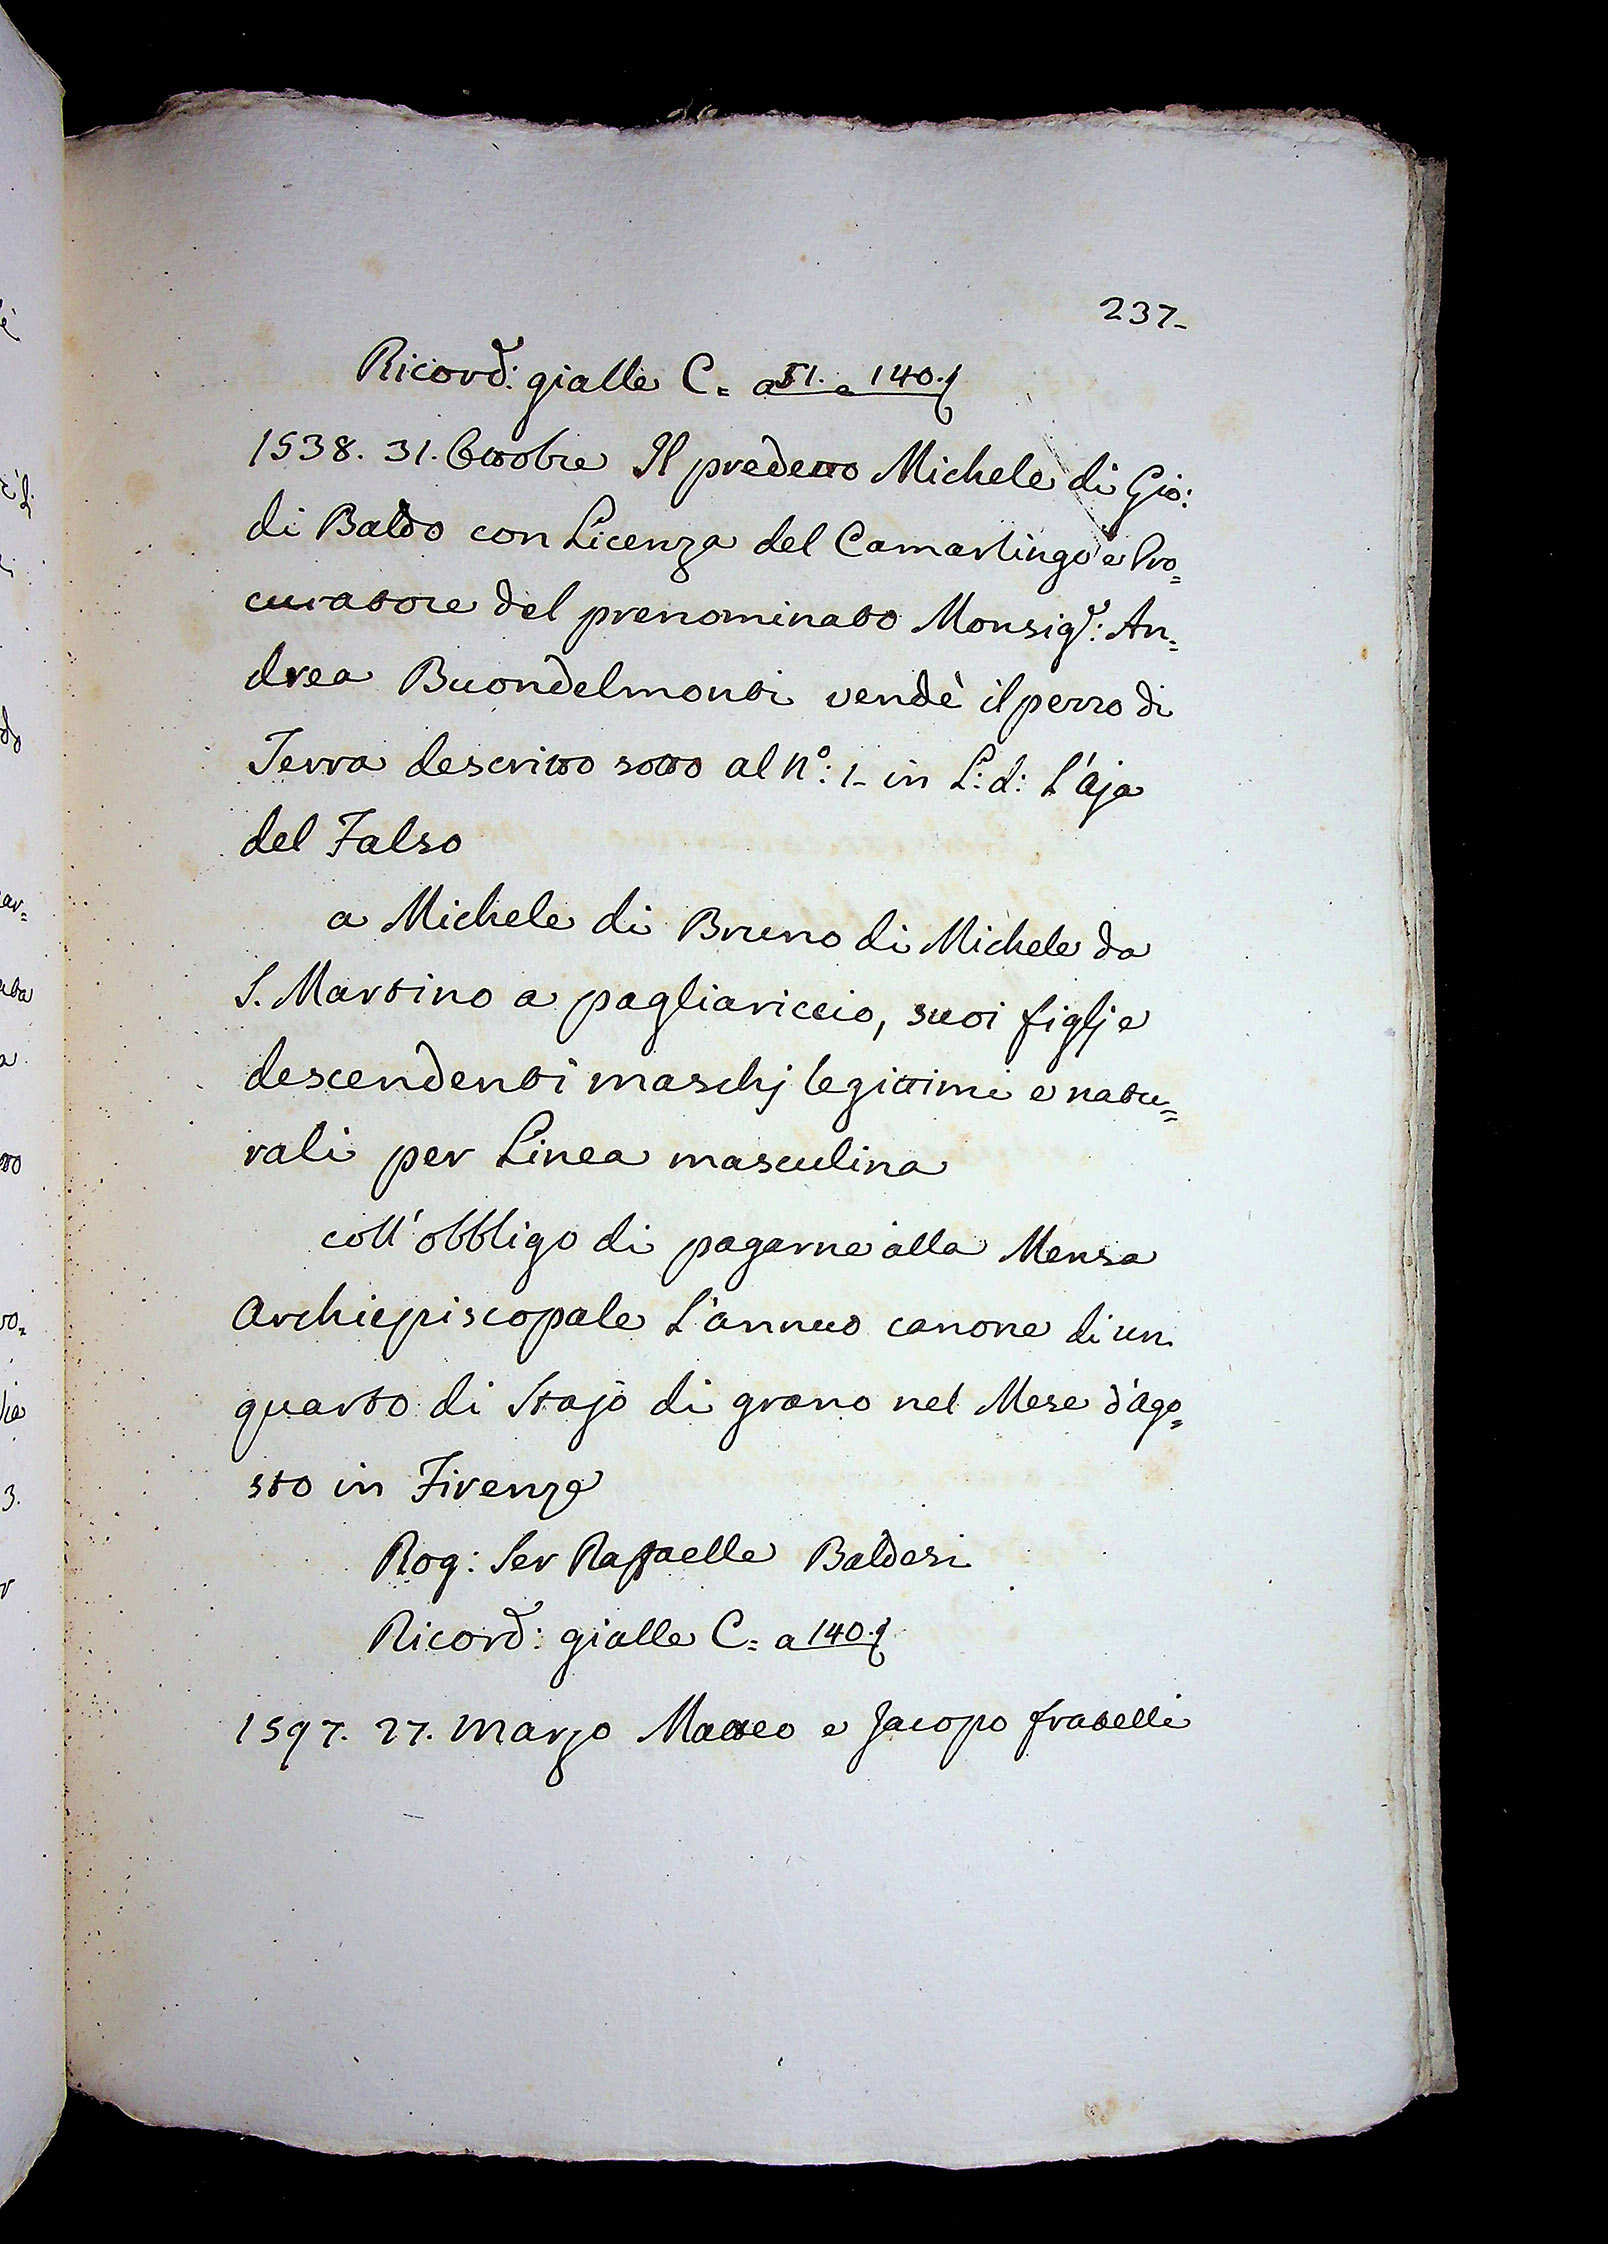 237-
Ricord: gialle C= a 51. e 140.
1538. 31. Ottobre Il predetto Michele di Gio:
di Baldo con Licenza del Camarlingo e Pro=
curatore del prenominato Monsigr: An=
drea Buondelmonti vendè il pezzo di
Terra descritto sotto al N°: 1- in L: d: L'aja
del Falso
a Michele di Bruno di Michele da
S. Martino a pagliariccio, suoi figlj e
descendenti maschj legittimi e natu=
rali per Linea masculina
coll'obbligo di pagarne alla Mensa
Archiepiscopale L'annuo canone di un
quarto di Stajo di grano nel Mese d'Ago=
sto in Firenze
Rog: Ser Raffaelle Baldesi
Ricord: gialle C= a 140.
1597. 27. Marzo Matteo e Jacopo fratelli